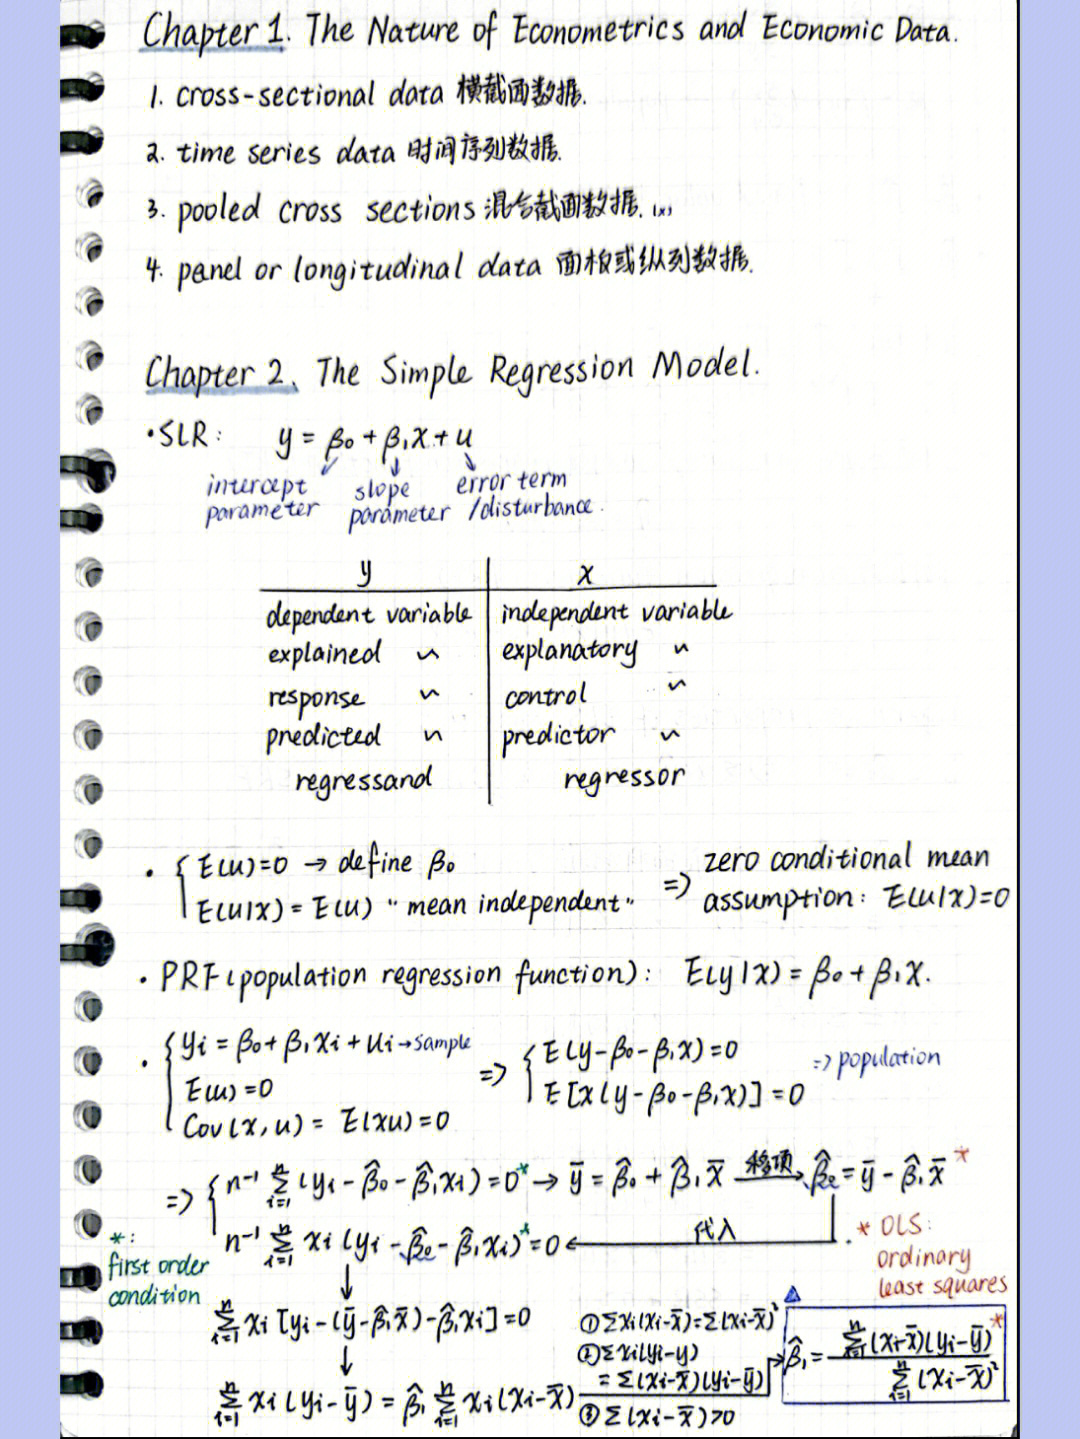 Chapter 1. The Nature of Econometrics and Economic Data.
1. cross-sectional data 横截面数据.
2. time series data 时间序列数据.
3. pooled cross sections 混合截面数据. (x)
4. panel or longitudinal data 面板或纵列数据.
Chapter 2. The Simple Regression Model.
·SLR: y = β₀ + β₁x + u
intercept parameter
slope parameter
error term /disturbance.
y | x
dependent variable | independent variable
explained 〃 | explanatory 〃
response 〃 | control 〃
predicted 〃 | predictor 〃
regressand | regressor
· { E(u)=0 → define β₀
E(u|x) = E(u) "mean independent"
=> zero conditional mean
assumption: E(u|x)=0
· PRF (population regression function): E(y|x) = β₀ + β₁x.
· { yi = β₀ + β₁xi + ui → sample
E(u) = 0
Cov(x, u) = E(xu) = 0
=> { E(y-β₀-β₁x) = 0
E[x(y-β₀-β₁x)] = 0
=> population
=> { n⁻¹ Σⁿᵢ₌₁ (yi - β̂₀ - β̂₁xi) = 0* → ȳ = β̂₀ + β̂₁x̄ 移项→ β̂₀ = ȳ - β̂₁x̄ *
n⁻¹ Σⁿᵢ₌₁ xi (yi - β̂₀ - β̂₁xi)* = 0 ← 代入
*:
first order
condition
* OLS:
ordinary
least squares
↓
Σⁿᵢ₌₁ xi [yi - (ȳ - β̂₁x̄) - β̂₁xi] = 0
↓
Σⁿᵢ₌₁ xi (yi - ȳ) = β̂₁ Σⁿᵢ₌₁ xi (xi - x̄)
① Σxi(xi-x̄) = Σ(xi-x̄)²
② Σxi(yi-y)
= Σ(xi-x̄)(yi-ȳ)
③ Σ(xi-x̄)>0
→ β̂₁ = Σⁿᵢ₌₁ (xi-x̄)(yi-ȳ) / Σⁿᵢ₌₁ (xi-x̄)² *